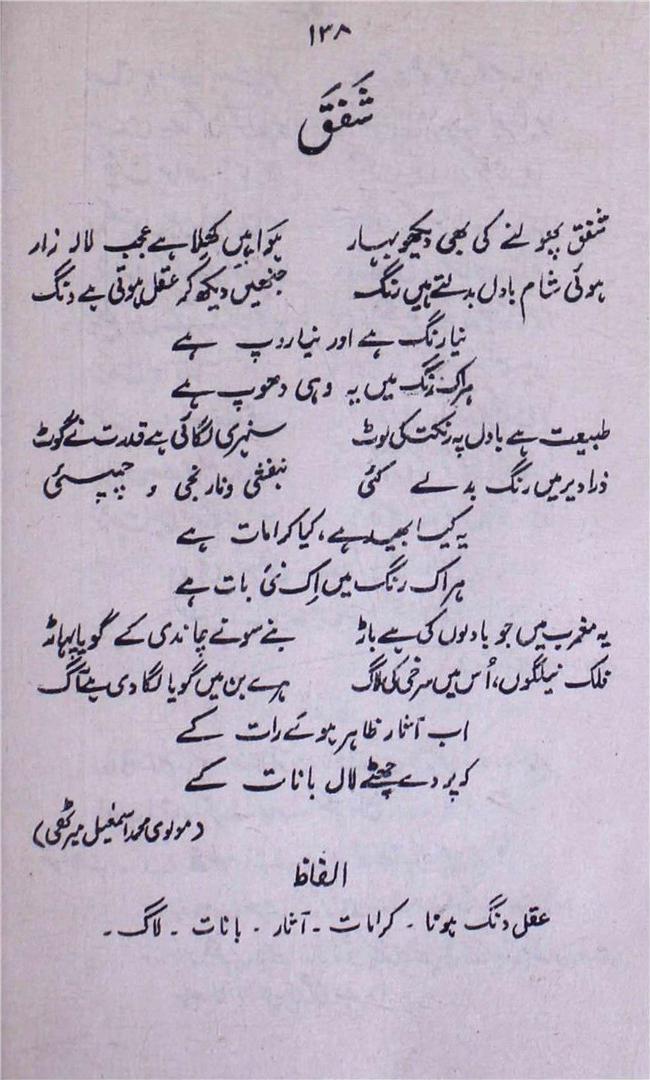 ۱۳۸
شَفَق
شفق پھولنے کی بھی دیکھو بہار ہوا میں کھلا ہے عجب لالہ زار
ہوئی شام بادل بدلتے ہیں رنگ جنھیں دیکھ کر عقل ہوتی ہے دنگ
نیا رنگ ہے اور نیا روپ ہے
ہر اک رنگ میں یہ وہی دھوپ ہے
طبیعت ہے بادل پہ رنگت کی لوٹ سنہری لگائی ہے قدرت نے گوٹ
ذرا دیر میں رنگ بدلے کئی بنفشی و نارنجی و چمپئی
یہ کیا بھید ہے، کیا کرامات ہے
ہر اک رنگ میں اِک نئی بات ہے
یہ مغرب میں جو بادلوں کی ہے باڑ بنے سونے چاندی کے گویا پہاڑ
فلک نیلگوں، اُس میں سرخی کی لاگ ہرے بن میں گویا لگا دی ہے آگ
اب آثار ظاہر ہوئے رات کے
کہ پردے چھٹے لال بانات کے
(مولوی محمد اسمٰعیل میرٹھی)
الفاظ
عقل دنگ ہونا ۔ کرامات ۔ آثار ۔ بانات ۔ لاگ ۔